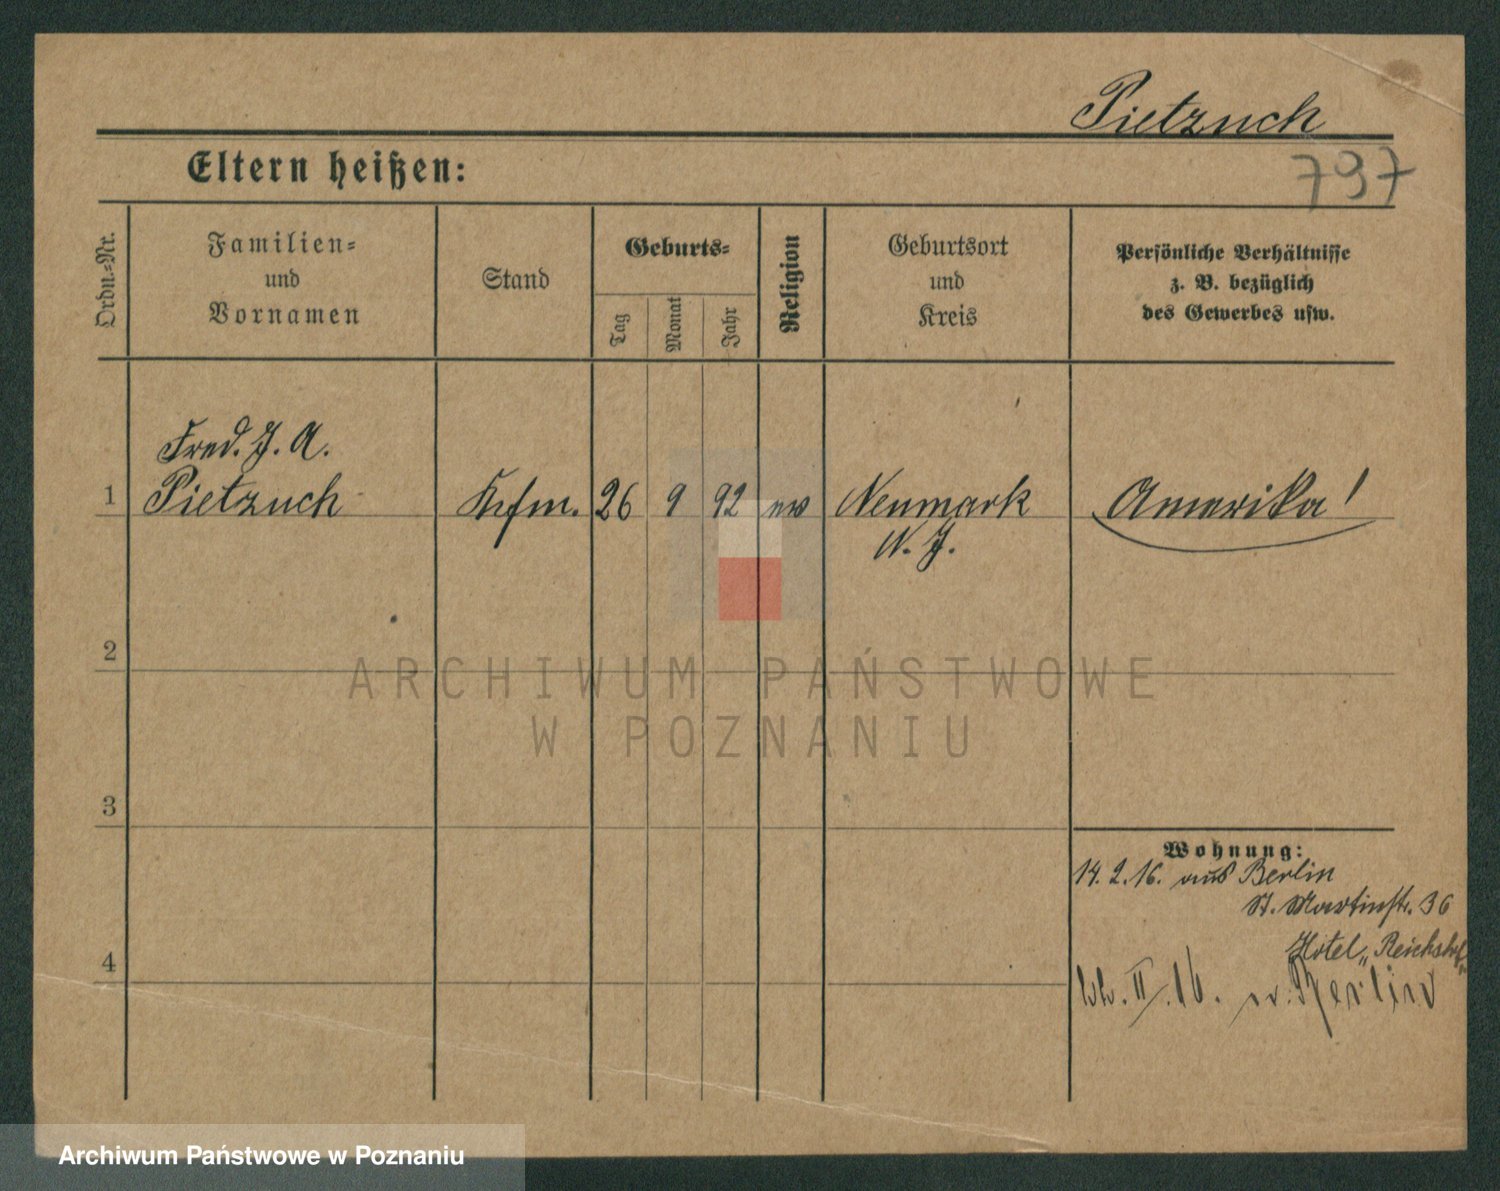 Pietzuch
797
Eltern heißen:
Ordn.=Nr.
Familien=
und
Vornamen
Stand
Geburts=
Tag
Monat
Jahr
Religion
Geburtsort
und
Kreis
Persönliche Verhältnisse
z. B. bezüglich
des Gewerbes usw.
Fred. J. A.
1 Pietzuch Krfm. 26 9 92 ev Neumark Amerika!
N. J.
2
ARCHIWUM PAŃSTWOWE
W POZNANIU
3
Wohnung:
14. 2. 16. aus Berlin
St. Martinstr. 36
Hotel „Reichshof"
4
II. 16. n. Berlin
Archiwum Państwowe w Poznaniu